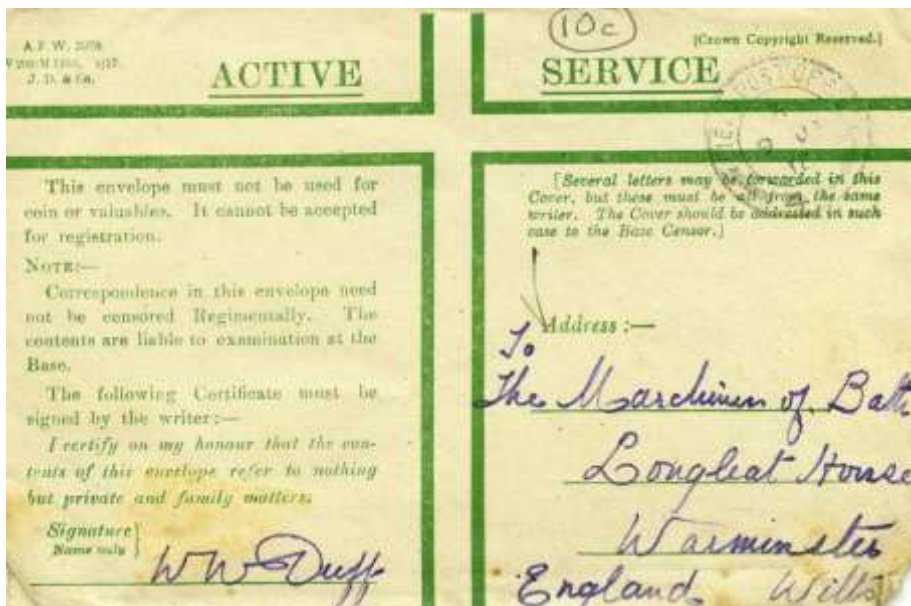 10c
A.F.W. 3078
[Crown Copyright Reserved.]
J. D. & Co.
ACTIVE SERVICE
This envelope must not be used for
coin or valuables. It cannot be accepted
for registration.
NOTE:—
Correspondence in this envelope need
not be censored Regimentally. The
contents are liable to examination at the
Base.
The following Certificate must be
signed by the writer:—
I certify on my honour that the con-
tents of this envelope refer to nothing
but private and family matters.
Signature
Name only
W W Duff
[Several letters may be forwarded in this
Cover, but these must be all from the same
writer. The Cover should be addressed in such
case to the Base Censor.]
Address :—
To
The Marchioness of Bath
Longleat House
Warminster
England. Wilts